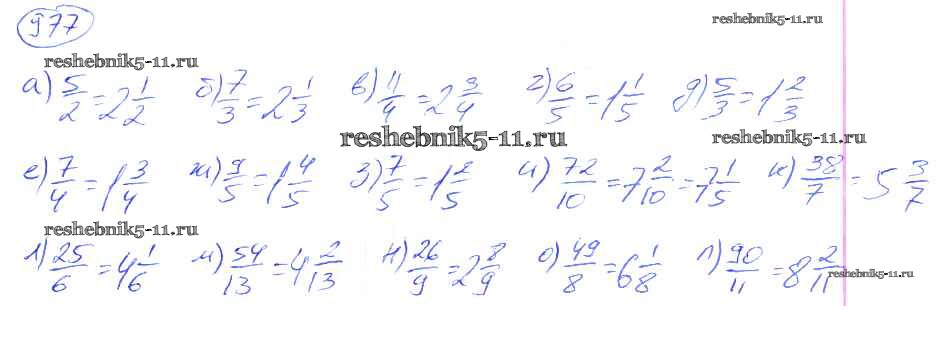 977 reshebnik5-11.ru
reshebnik5-11.ru
а) 5/2 = 2 1/2 б) 7/3 = 2 1/3 в) 11/4 = 2 3/4 г) 6/5 = 1 1/5 д) 5/3 = 1 2/3
reshebnik5-11.ru reshebnik5-11.ru
е) 7/4 = 1 3/4 ж) 9/5 = 1 4/5 з) 7/5 = 1 2/5 и) 72/10 = 7 2/10 = 7 1/5 к) 38/7 = 5 3/7
reshebnik5-11.ru
л) 25/6 = 4 1/6 м) 54/13 = 4 2/13 н) 26/9 = 2 8/9 о) 49/8 = 6 1/8 п) 90/11 = 8 2/11
reshebnik5-11.ru